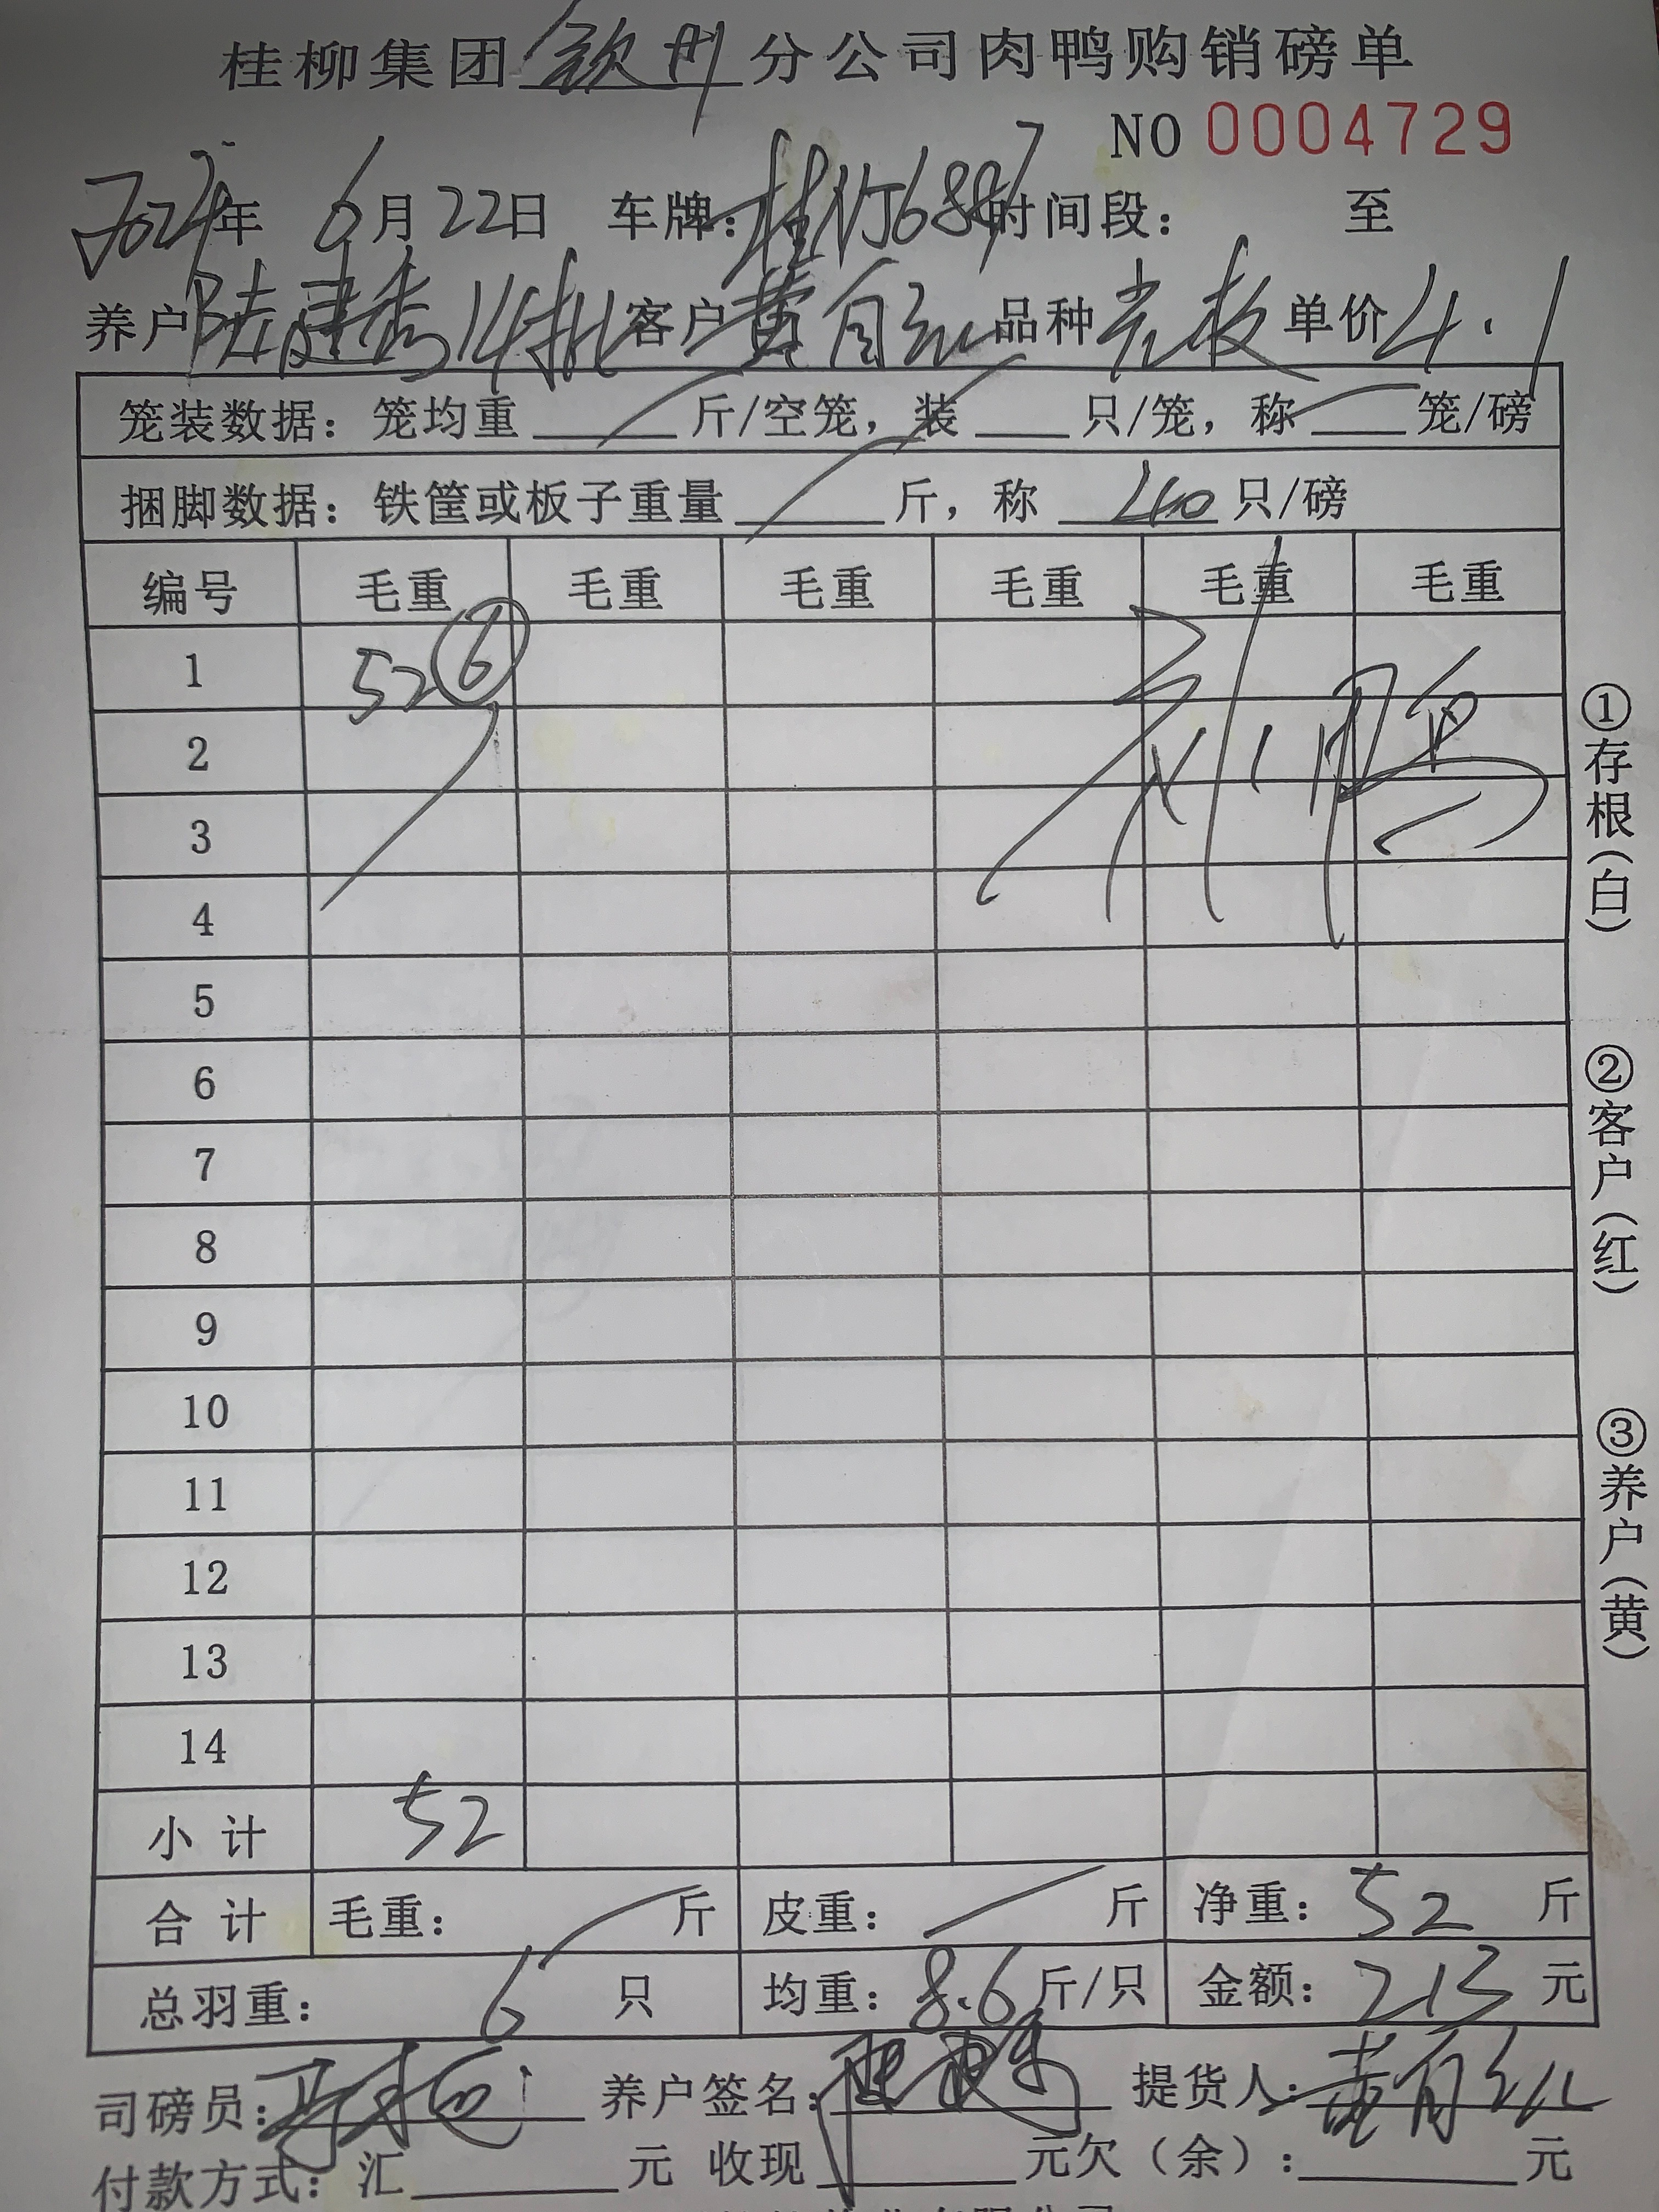 桂柳集团 钦州 分公司肉鸭购销磅单
NO 0004729
2024年 6月22日 车牌: 时间段: 至
养户 陆建秀14批 客户 黄有红 品种 单价 4.1
笼装数据: 笼均重 斤/空笼, 装 只/笼, 称 笼/磅
捆脚数据: 铁筐或板子重量 斤, 称 240 只/磅
编号 毛重 毛重 毛重 毛重 毛重 毛重
1 52 6
2
3
4
5
6
7
8
9
10
11
12
13
14
小计 52
合计 毛重: 斤 皮重: 斤 净重: 52 斤
总羽重: 6 只 均重: 8.6 斤/只 金额: 213 元
司磅员: 养户签名: 提货人: 黄有红
付款方式: 汇 元 收现 元欠(余): 元
①存根(白)
②客户(红)
③养户(黄)